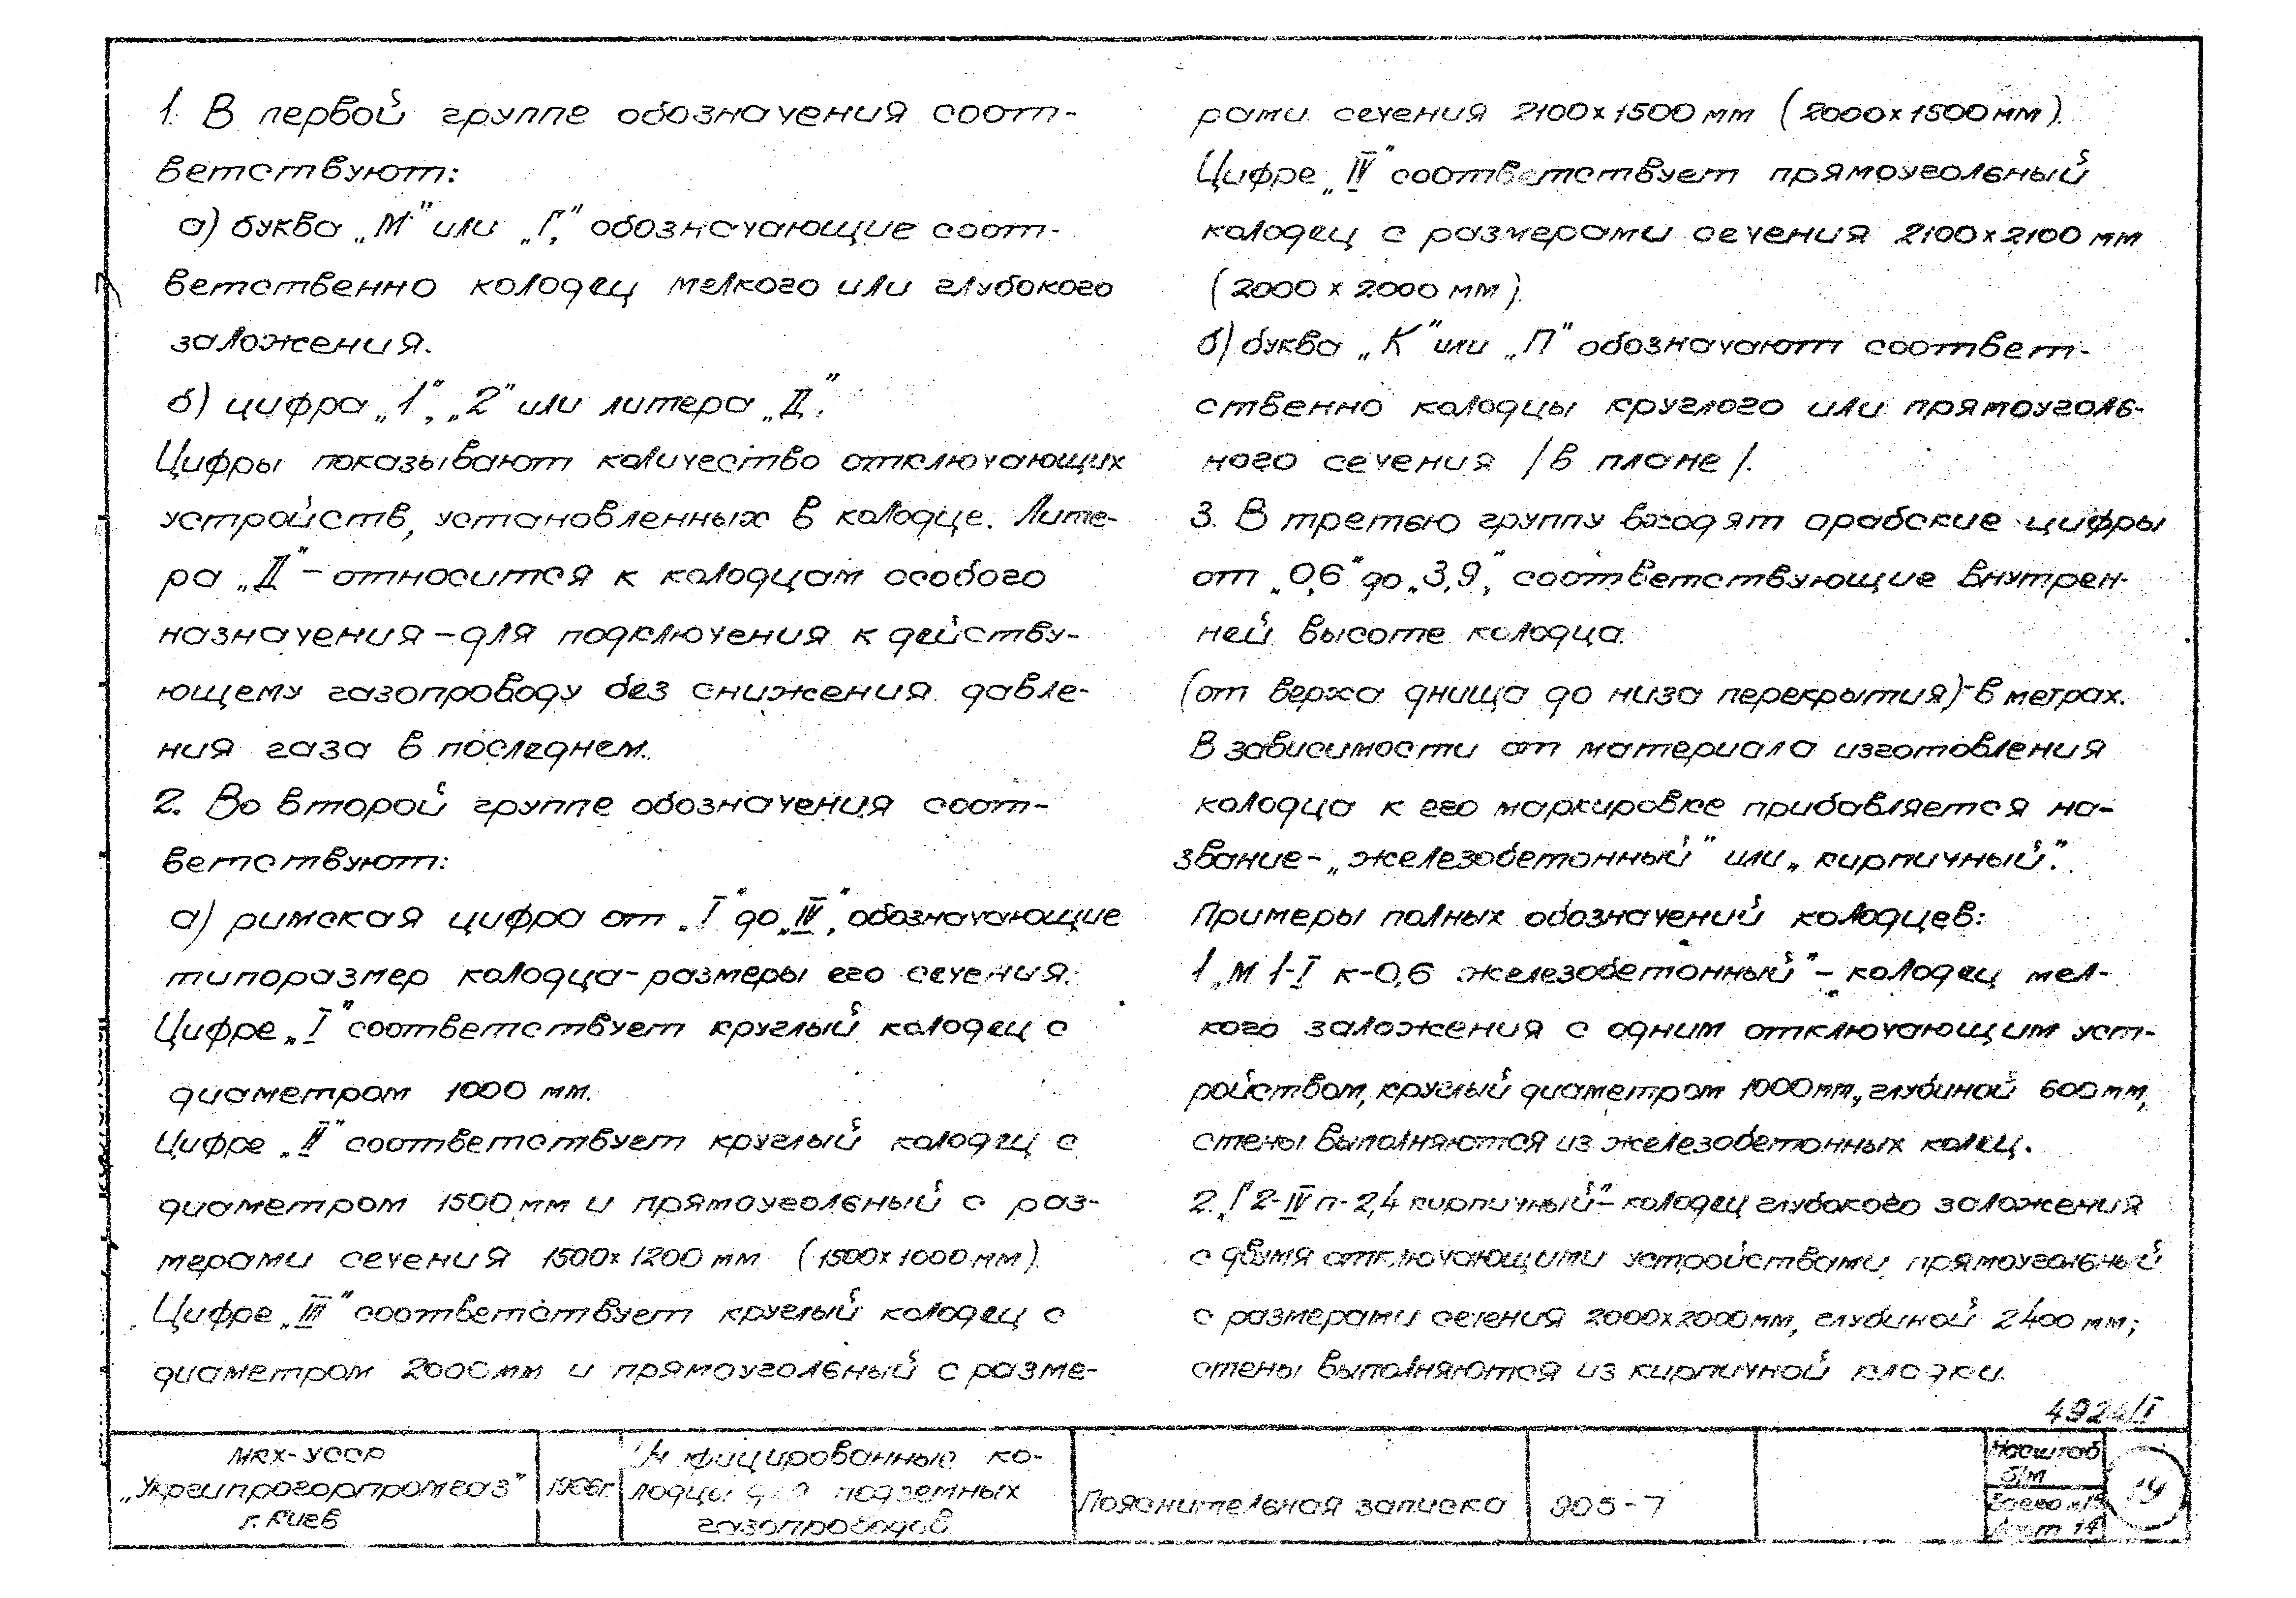 1. В первой группе обозначения соот-
ветствуют:
а) буква „М" или „Г", обозначающие соот-
ветственно колодец мелкого или глубокого
заложения.
б) цифра „1", „2" или литера „Д".
Цифры показывают количество отключающих
устройств, установленных в колодце. Лите-
ра „Д" – относится к колодцам особого
назначения – для подключения к действу-
ющему газопроводу без снижения давле-
ния газа в последнем.
2. Во второй группе обозначения соот-
ветствуют:
а) римская цифра от „I" до „IV", обозначающие
типоразмер колодца – размеры его сечения.
Цифре „I" соответствует круглый колодец с
диаметром 1000 мм.
Цифре „II" соответствует круглый колодец с
диаметром 1500 мм и прямоугольный с раз-
мерами сечения 1500х1200 мм (1500х1000 мм).
Цифре „III" соответствует круглый колодец с
диаметром 2000мм и прямоугольный с разме-
рами сечения 2100х1500 мм (2000х1500 мм).
Цифре „IV" соответствует прямоугольный
колодец с размерами сечения 2100х2100 мм
(2000 х 2000 мм).
б) буква „К" или „П" обозначают соответ-
ственно колодцы круглого или прямоуголь-
ного сечения /в плане/.
3. В третью группу входят арабские цифры
от „0,6" до „3,9", соответствующие внутрен-
ней высоте колодца
(от верха днища до низа перекрытия) – в метрах.
В зависимости от материала изготовления
колодца к его маркировке прибавляется на-
звание – „железобетонный" или „кирпичный".
Примеры полных обозначений колодцев:
1 „М 1-I к-0,6 железобетонный" – колодец мел-
кого заложения с одним отключающим уст-
ройством, круглый диаметром 1000мм, глубиной 600мм,
стены выполняются из железобетонных колец.
2. „Г 2-IV п-2,4 кирпичный" – колодец глубокого заложения
с двумя отключающими устройствами, прямоугольный
с размерами сечения 2000х2000мм, глубиной 2400 мм;
стены выполняются из кирпичной кладки.
4924/I
МКХ-УССР
„Укргипрогорпромгаз"
г. Киев
Унифицированные ко-
лодцы для подземных
газопроводов
Пояснительная записка
905-7
Масштаб
б/м
Лист 14
19